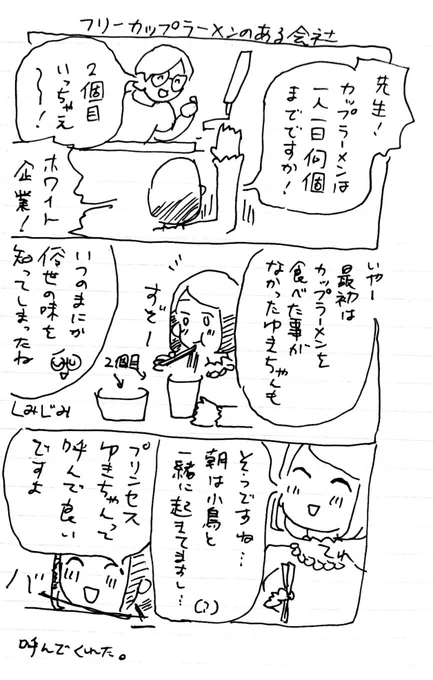 フリーカップラーメンのある会社
先生!
カップラーメンは
一人一日何個
までですか!
2個目
いっちゃえ
〜〜!
ホワイト
企業!
いやー
最初は
カップラーメンを
食べた事が
なかったゆきちゃんも
ずぞー
2個目
いつのまにか
俗世の味を
知ってしまったね
しみじみ
てれ
そうですね…
朝は小鳥と
一緒に起きてますし…
(?)
プリンセス
ゆきちゃんって
呼んで良い
ですよ
バ
呼んでくれた。